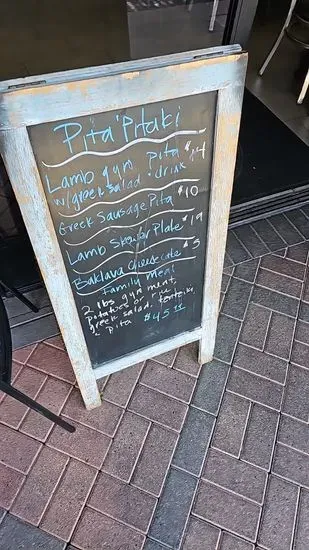 Pita Pitaki
Lamb gyro Pita $14
w/ greek salad + drink
Greek Sausage Pita $10
Lamb Skewer Plate $19
Baklava cheesecake $5
Family Meal
2 lbs gyro meat,
potatoes or rice
greek salad,
& Pita $45